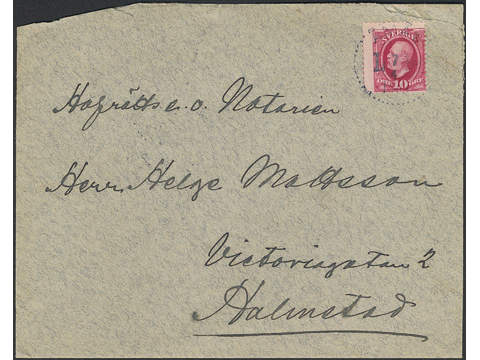 SVERIGE
10
Hofrätts e. o. Notarien
Herr Helge Mattsson
Victoriagatan 2
Halmstad